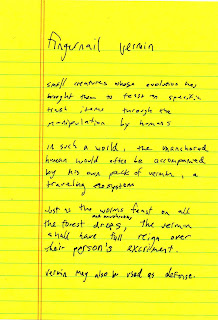 Fingernail vermin
small creatures whose evolution has
brought them to feast on specific
trash items through the
manipulation by humans
in such a world, the unanchored
human would often be accompanied
by his own pack of vermin, a
traveling ecosystem
just as the worms feast on all
and mushrooms
the forest drops, the vermin
shall have full reign over
their person's excrement.
vermin may also be used as defense.